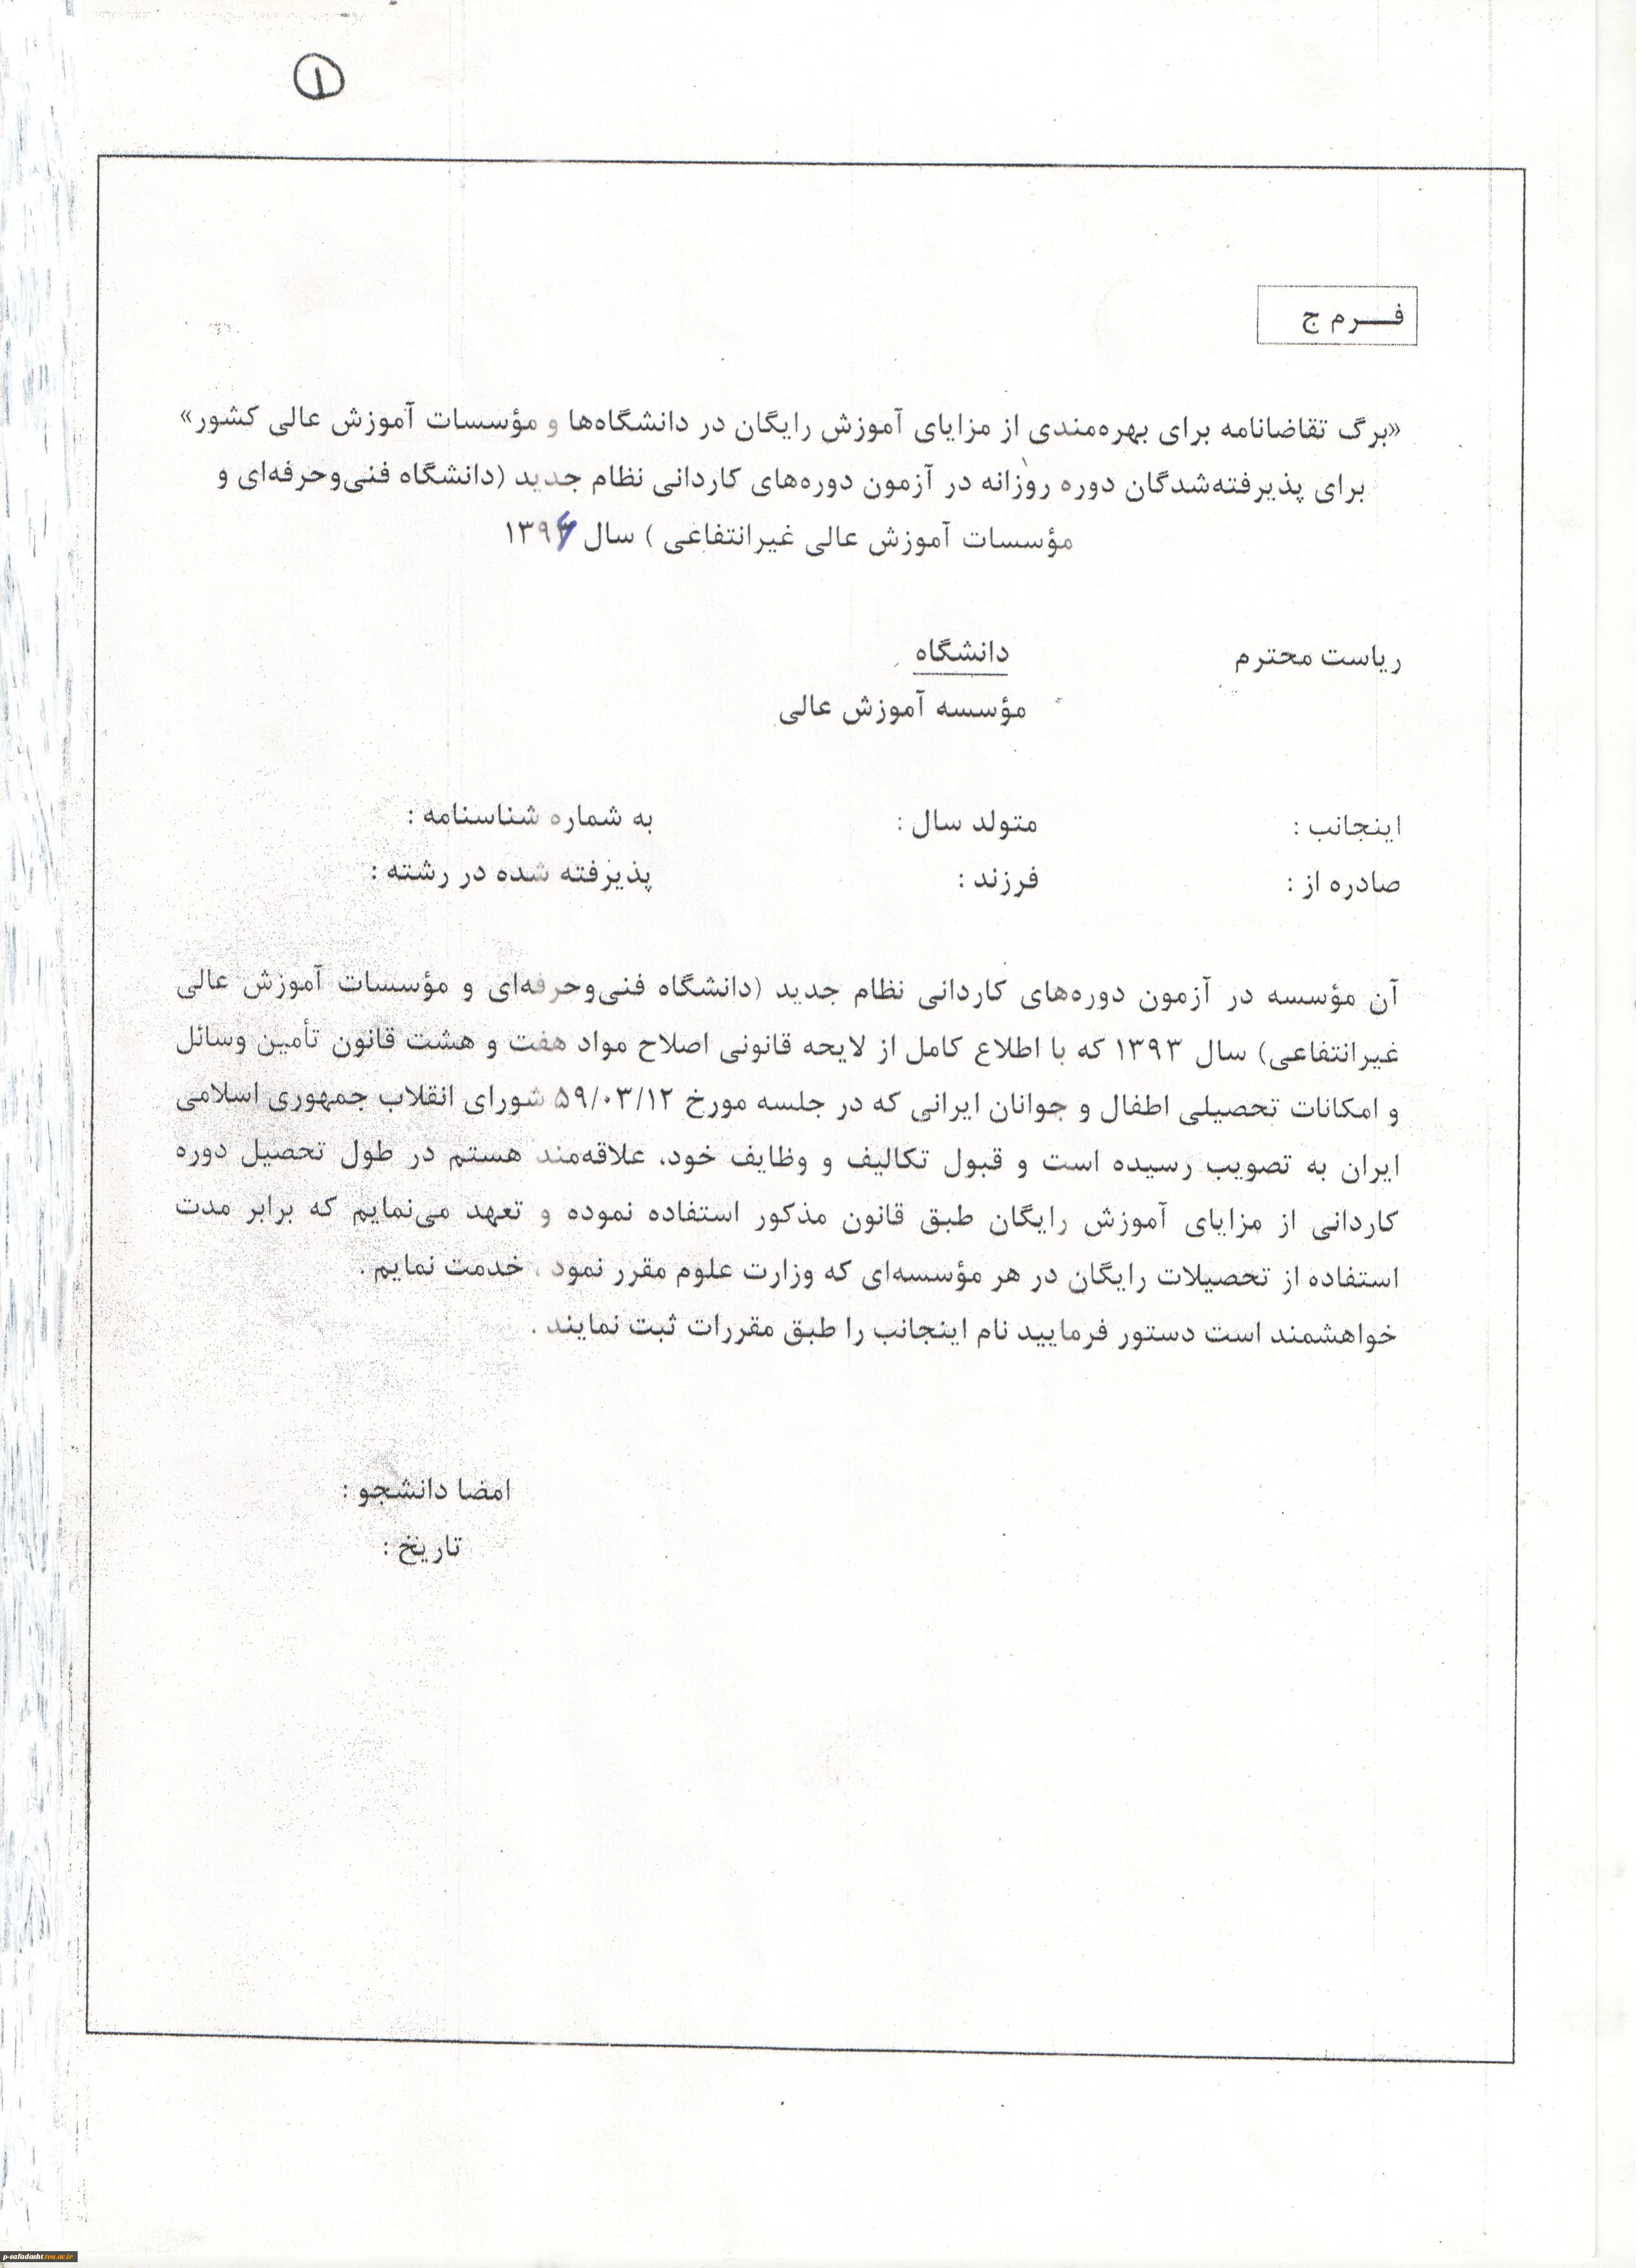 ۱
فـــرم ج
«برگ تقاضانامه برای بهره‌مندی از مزایای آموزش رایگان در دانشگاه‌ها و مؤسسات آموزش عالی کشور»
برای پذیرفته‌شدگان دوره روزانه در آزمون دوره‌های کاردانی نظام جدید (دانشگاه فنی‌وحرفه‌ای و
مؤسسات آموزش عالی غیرانتفاعی ) سال
ریاست محترم دانشگاه
مؤسسه آموزش عالی
اینجانب : متولد سال : به شماره شناسنامه :
صادره از : فرزند : پذیرفته شده در رشته :
آن مؤسسه در آزمون دوره‌های کاردانی نظام جدید (دانشگاه فنی‌وحرفه‌ای و مؤسسات آموزش عالی
غیرانتفاعی) سال ۱۳۹۳ که با اطلاع کامل از لایحه قانونی اصلاح مواد هفت و هشت قانون تأمین وسائل
و امکانات تحصیلی اطفال و جوانان ایرانی که در جلسه مورخ ۵۹/۰۳/۱۲ شورای انقلاب جمهوری اسلامی
ایران به تصویب رسیده است و قبول تکالیف و وظایف خود، علاقه‌مند هستم در طول تحصیل دوره
کاردانی از مزایای آموزش رایگان طبق قانون مذکور استفاده نموده و تعهد می‌نمایم که برابر مدت
استفاده از تحصیلات رایگان در هر مؤسسه‌ای که وزارت علوم مقرر نمود ، خدمت نمایم .
خواهشمند است دستور فرمایید نام اینجانب را طبق مقررات ثبت نمایند .
امضا دانشجو :
تاریخ :
p-safadasht.tvu.ac.ir